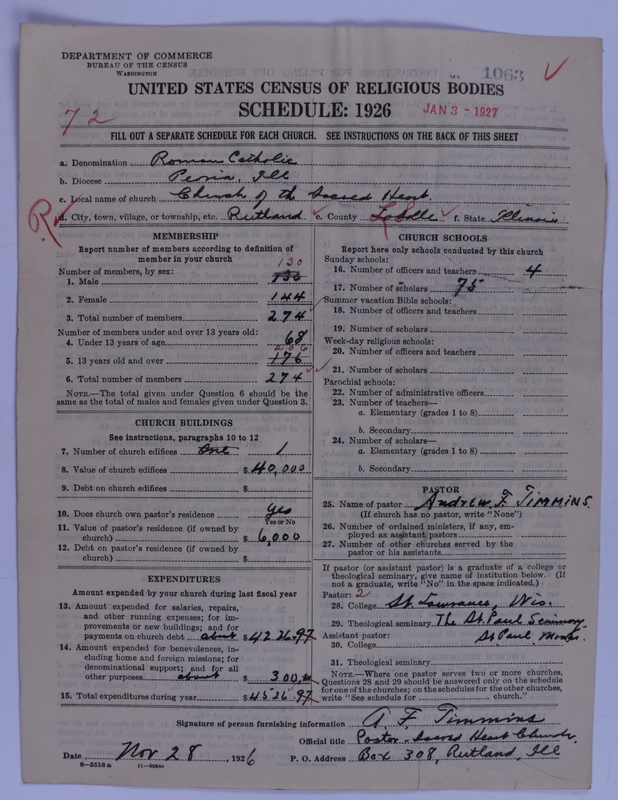 DEPARTMENT OF COMMERCE
BUREAU OF THE CENSUS
WASHINGTON
1063
UNITED STATES CENSUS OF RELIGIOUS BODIES
SCHEDULE: 1926
JAN 3 - 1927
72
FILL OUT A SEPARATE SCHEDULE FOR EACH CHURCH. SEE INSTRUCTIONS ON THE BACK OF THIS SHEET
a. Denomination Roman Catholic
b. Diocese Peoria, Ill
c. Local name of church Church of the Sacred Heart.
R
d. City, town, village, or township, etc. Rutland e. County LaSalle f. State Illinois
MEMBERSHIP
Report number of members according to definition of
member in your church
Number of members, by sex:
130
1. Male
2. Female 144
3. Total number of members 274
Number of members under and over 13 years old:
4. Under 13 years of age 68
206
5. 13 years old and over 176
6. Total number of members 274
NOTE.—The total given under Question 6 should be the
same as the total of males and females given under Question 3.
CHURCH BUILDINGS
See instructions, paragraphs 10 to 12
7. Number of church edifices One 1
8. Value of church edifices $40,000
9. Debt on church edifices $
10. Does church own pastor's residence? Yes
Yes or No
11. Value of pastor's residence (if owned by
church) $6,000
12. Debt on pastor's residence (if owned by
church) $
EXPENDITURES
Amount expended by your church during last fiscal year
13. Amount expended for salaries, repairs,
and other running expenses; for im-
provements or new buildings; and for
payments on church debt about $4226.97
14. Amount expended for benevolences, in-
cluding home and foreign missions; for
denominational support; and for all
other purposes about $300.00
15. Total expenditures during year $4526.97
CHURCH SCHOOLS
Report here only schools conducted by this church
Sunday schools:
16. Number of officers and teachers 4
17. Number of scholars 75
Summer vacation Bible schools:
18. Number of officers and teachers
19. Number of scholars
Week-day religious schools:
20. Number of officers and teachers
21. Number of scholars
Parochial schools:
22. Number of administrative officers
23. Number of teachers—
a. Elementary (grades 1 to 8)
b. Secondary
24. Number of scholars—
a. Elementary (grades 1 to 8)
b. Secondary
PASTOR
25. Name of pastor Andrew F. Timmins.
(If church has no pastor, write "None")
26. Number of ordained ministers, if any, em-
ployed as assistant pastors
27. Number of other churches served by the
pastor or his assistants
If pastor (or assistant pastor) is a graduate of a college or
theological seminary, give name of institution below. (If
not a graduate, write "No" in the space indicated.)
Pastor: 2
28. College St. Lawrance, Wis.
29. Theological seminary The St. Paul Seminary
Assistant pastor: St Paul Minn.
30. College
31. Theological seminary
NOTE.—Where one pastor serves two or more churches,
Questions 28 and 29 should be answered only on the schedule
for one of the churches; on the schedules for the other churches,
write "See schedule for church."
Signature of person furnishing information A. F. Timmins
Official title Pastor - Sacred Heart Church.
Date Nov 28, 1926 P. O. Address Box 308, Rutland, Ill
8—5518a